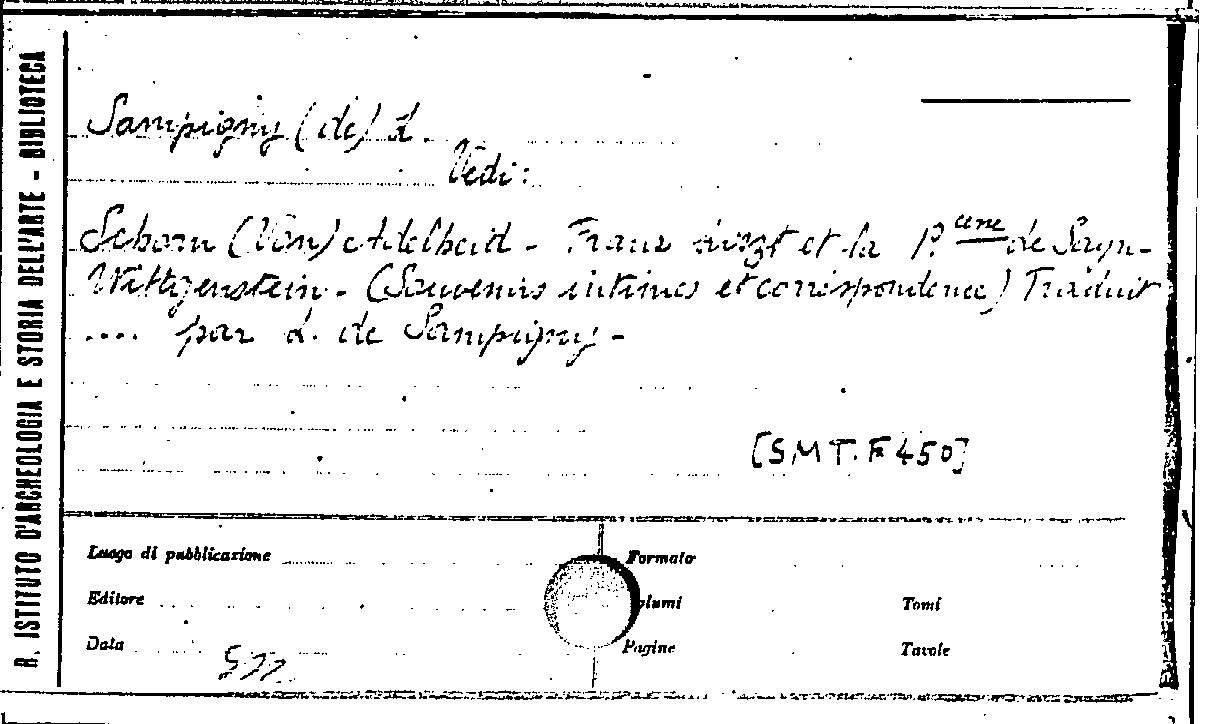 R. ISTITUTO D'ARCHEOLOGIA E STORIA DELL'ARTE - BIBLIOTECA
Sampigny (de) L.
Vedi:
Schorn (Von) Adelheid - Franz Liszt et la P.cme de Sayn-
Wittgenstein - (Souvenirs intimes et correspondence) Traduit
.... par L. de Sampigny -
[S.M T. F 450]
Luogo di pubblicazione
Formato
Editore
olumi
Tomi
Data
Pagine
Tavole